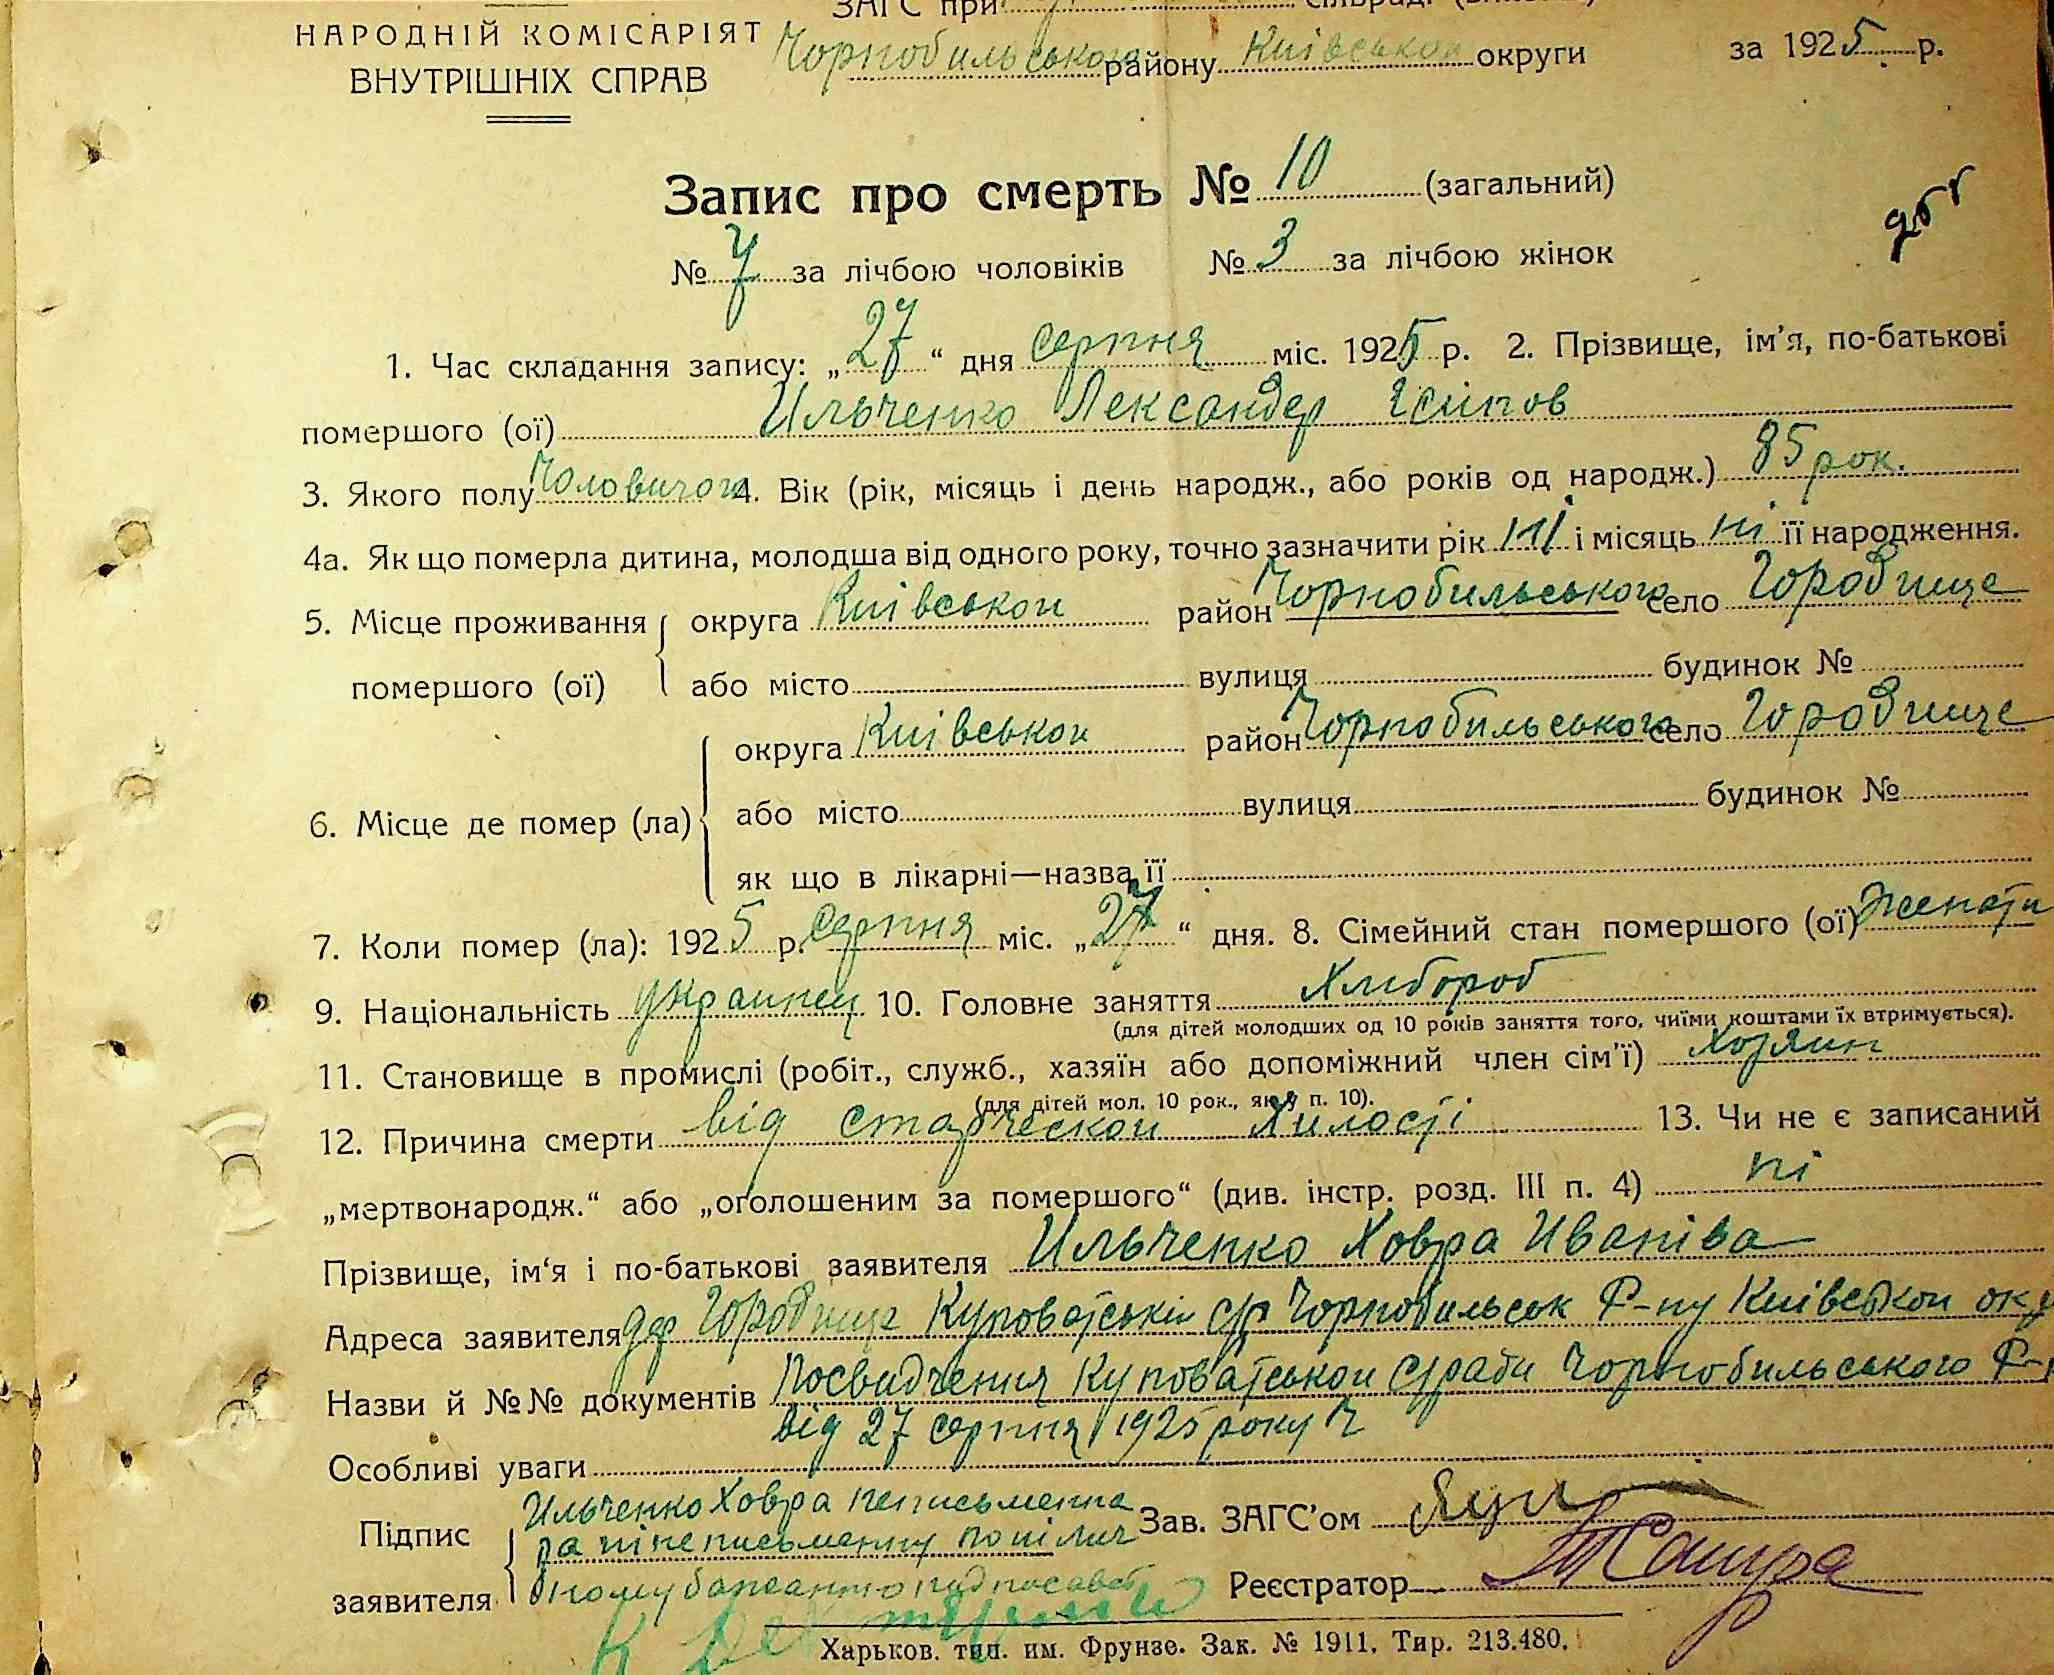 ЗАГС при сільраді
НАРОДНІЙ КОМІСАРІЯТ
Чорнобильського району Київськои округи за 1925 р.
ВНУТРІШНІХ СПРАВ
Запис про смерть № 10 (загальний)
№ 7 за лічбою чоловіків № 3 за лічбою жінок
1. Час складання запису: „27“ дня серпня міс. 1925 р. 2. Прізвище, ім’я, по-батькові
помершого (ої) Ильченко Лександер Існпов
3. Якого полу Чоловичого 4. Вік (рік, місяць і день народж., або років од народж.) 85 рок.
4а. Як що померла дитина, молодша від одного року, точно зазначити рік ні і місяць ні її народження.
5. Місце проживання округа Київськои район Чорнобильського село Городище
помершого (ої) або місто вулиця будинок №
округа Київськои район Чорнобильського село Городище
6. Місце де помер (ла) або місто вулиця будинок №
як що в лікарні—назва її
7. Коли помер (ла): 1925 р. серпня міс. „27“ дня. 8. Сімейний стан помершого (ої) Женати
9. Національність украинец 10. Головне заняття Хлибороб
(для дітей молодших од 10 років заняття того, чиїми коштами їх втримується).
11. Становище в промислі (робіт., служб., хазяїн або допоміжний член сім’ї) Хозяин
(для дітей мол. 10 рок., як у п. 10).
12. Причина смерти від старческои хилості 13. Чи не є записаний
„мертвонародж.“ або „оголошеним за помершого“ (див. інстр. розд. III п. 4) ні
Прізвище, ім‘я і по-батькові заявителя Ильченко Ховра Иванівa
Адреса заявителя Городище Куповатськои с/р Чорнобильськ Р-ну Київськои окр
Назви й №№ документів Посвидчення Куповатськои с/ради Чорнобильського Р-
від 27 серпня 1925 року Ч
Особливі уваги
Ильченко Ховра неписьменна
Підпис за ні неписьменну по ні лич Зав. ЗАГС’ом
заявителя ному бажанню Реєстратор
Харьков. тип. им. Фрунзе. Зак. № 1911. Тир. 213.480.